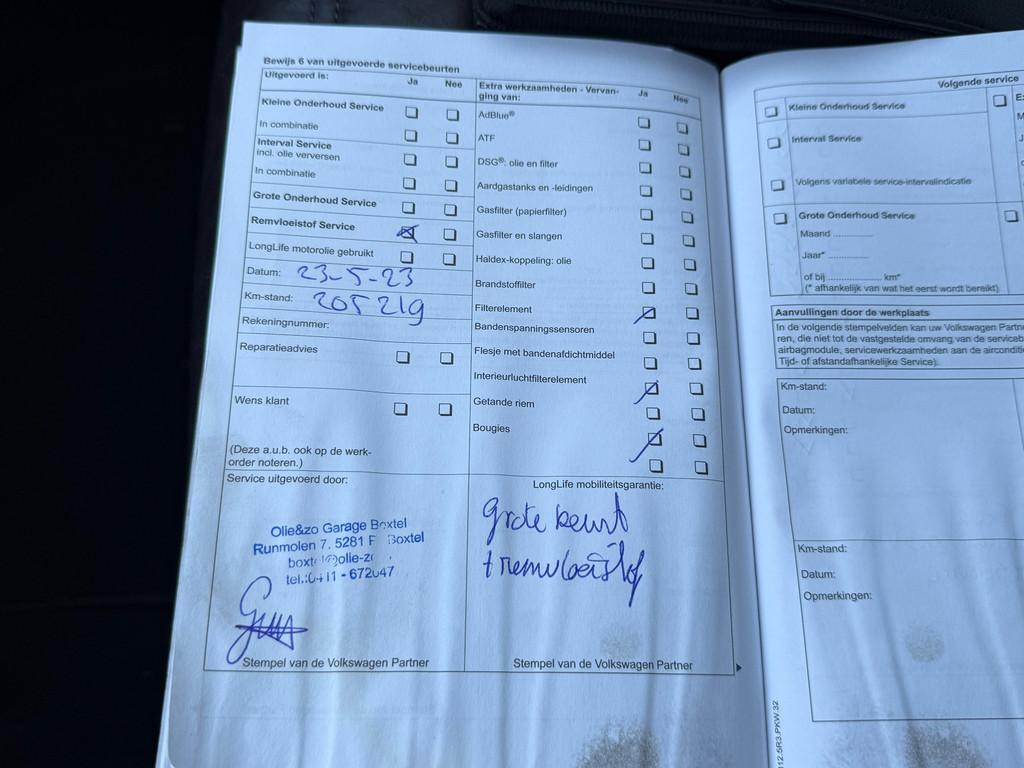 Bewijs 6 van uitgevoerde servicebeurten
Uitgevoerd is: Ja Nee
Kleine Onderhoud Service
In combinatie
Interval Service
incl. olie verversen
In combinatie
Grote Onderhoud Service
Remvloeistof Service
LongLife motorolie gebruikt
Datum: 23-5-23
Km-stand: 205219
Rekeningnummer:
Reparatieadvies
Wens klant
(Deze a.u.b. ook op de werk-
order noteren.)
Service uitgevoerd door:
Olie&zo Garage Boxtel
Runmolen 7. 5281 Boxtel
tel.:
Stempel van de Volkswagen Partner
Extra werkzaamheden - Vervan-
ging van: Ja Nee
AdBlue®
ATF
DSG®: olie en filter
Aardgastanks en -leidingen
Gasfilter (papierfilter)
Gasfilter en slangen
Haldex-koppeling: olie
Brandstoffilter
Filterelement
Bandenspanningssensoren
Flesje met bandenafdichtmiddel
Interieurluchtfilterelement
Getande riem
Bougies
LongLife mobiliteitsgarantie:
grote beurt
+ remvloeistof
Stempel van de Volkswagen Partner
Volgende service
Kleine Onderhoud Service
Interval Service
Volgens variabele service-intervalindicatie
Grote Onderhoud Service
Maand ..............
Jaar* ..............
of bij .................. km*
(* afhankelijk van wat het eerst wordt bereikt)
Aanvullingen door de werkplaats
In de volgende stempelvelden kan uw Volkswagen
ren, die niet tot de vastgestelde omvang van de
airbagmodule, servicewerkzaamheden aan de
Tijd- of afstandafhankelijke Service).
Km-stand:
Datum:
Opmerkingen:
Km-stand:
Datum:
Opmerkingen:
12.5R3.PKW.32